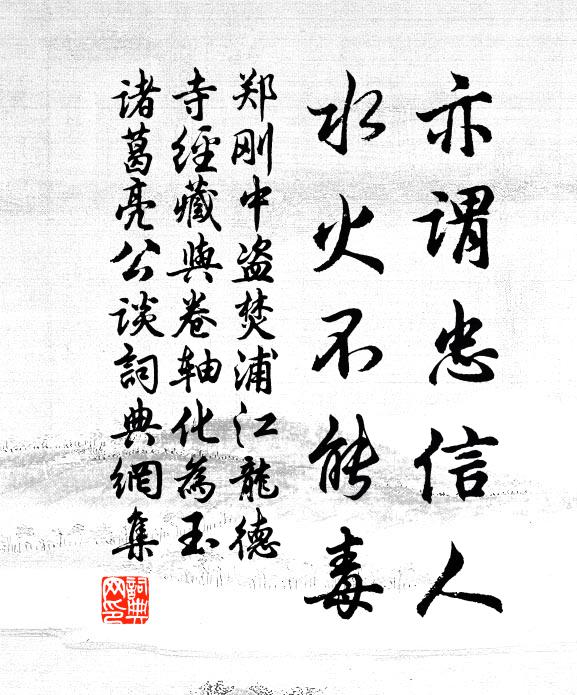 亦谓忠信人
水火不能毒
郑刚中盗焚浦江龍德
寺經藏與卷轴化為玉
诸葛亮公谈詞典網集
詞典网印